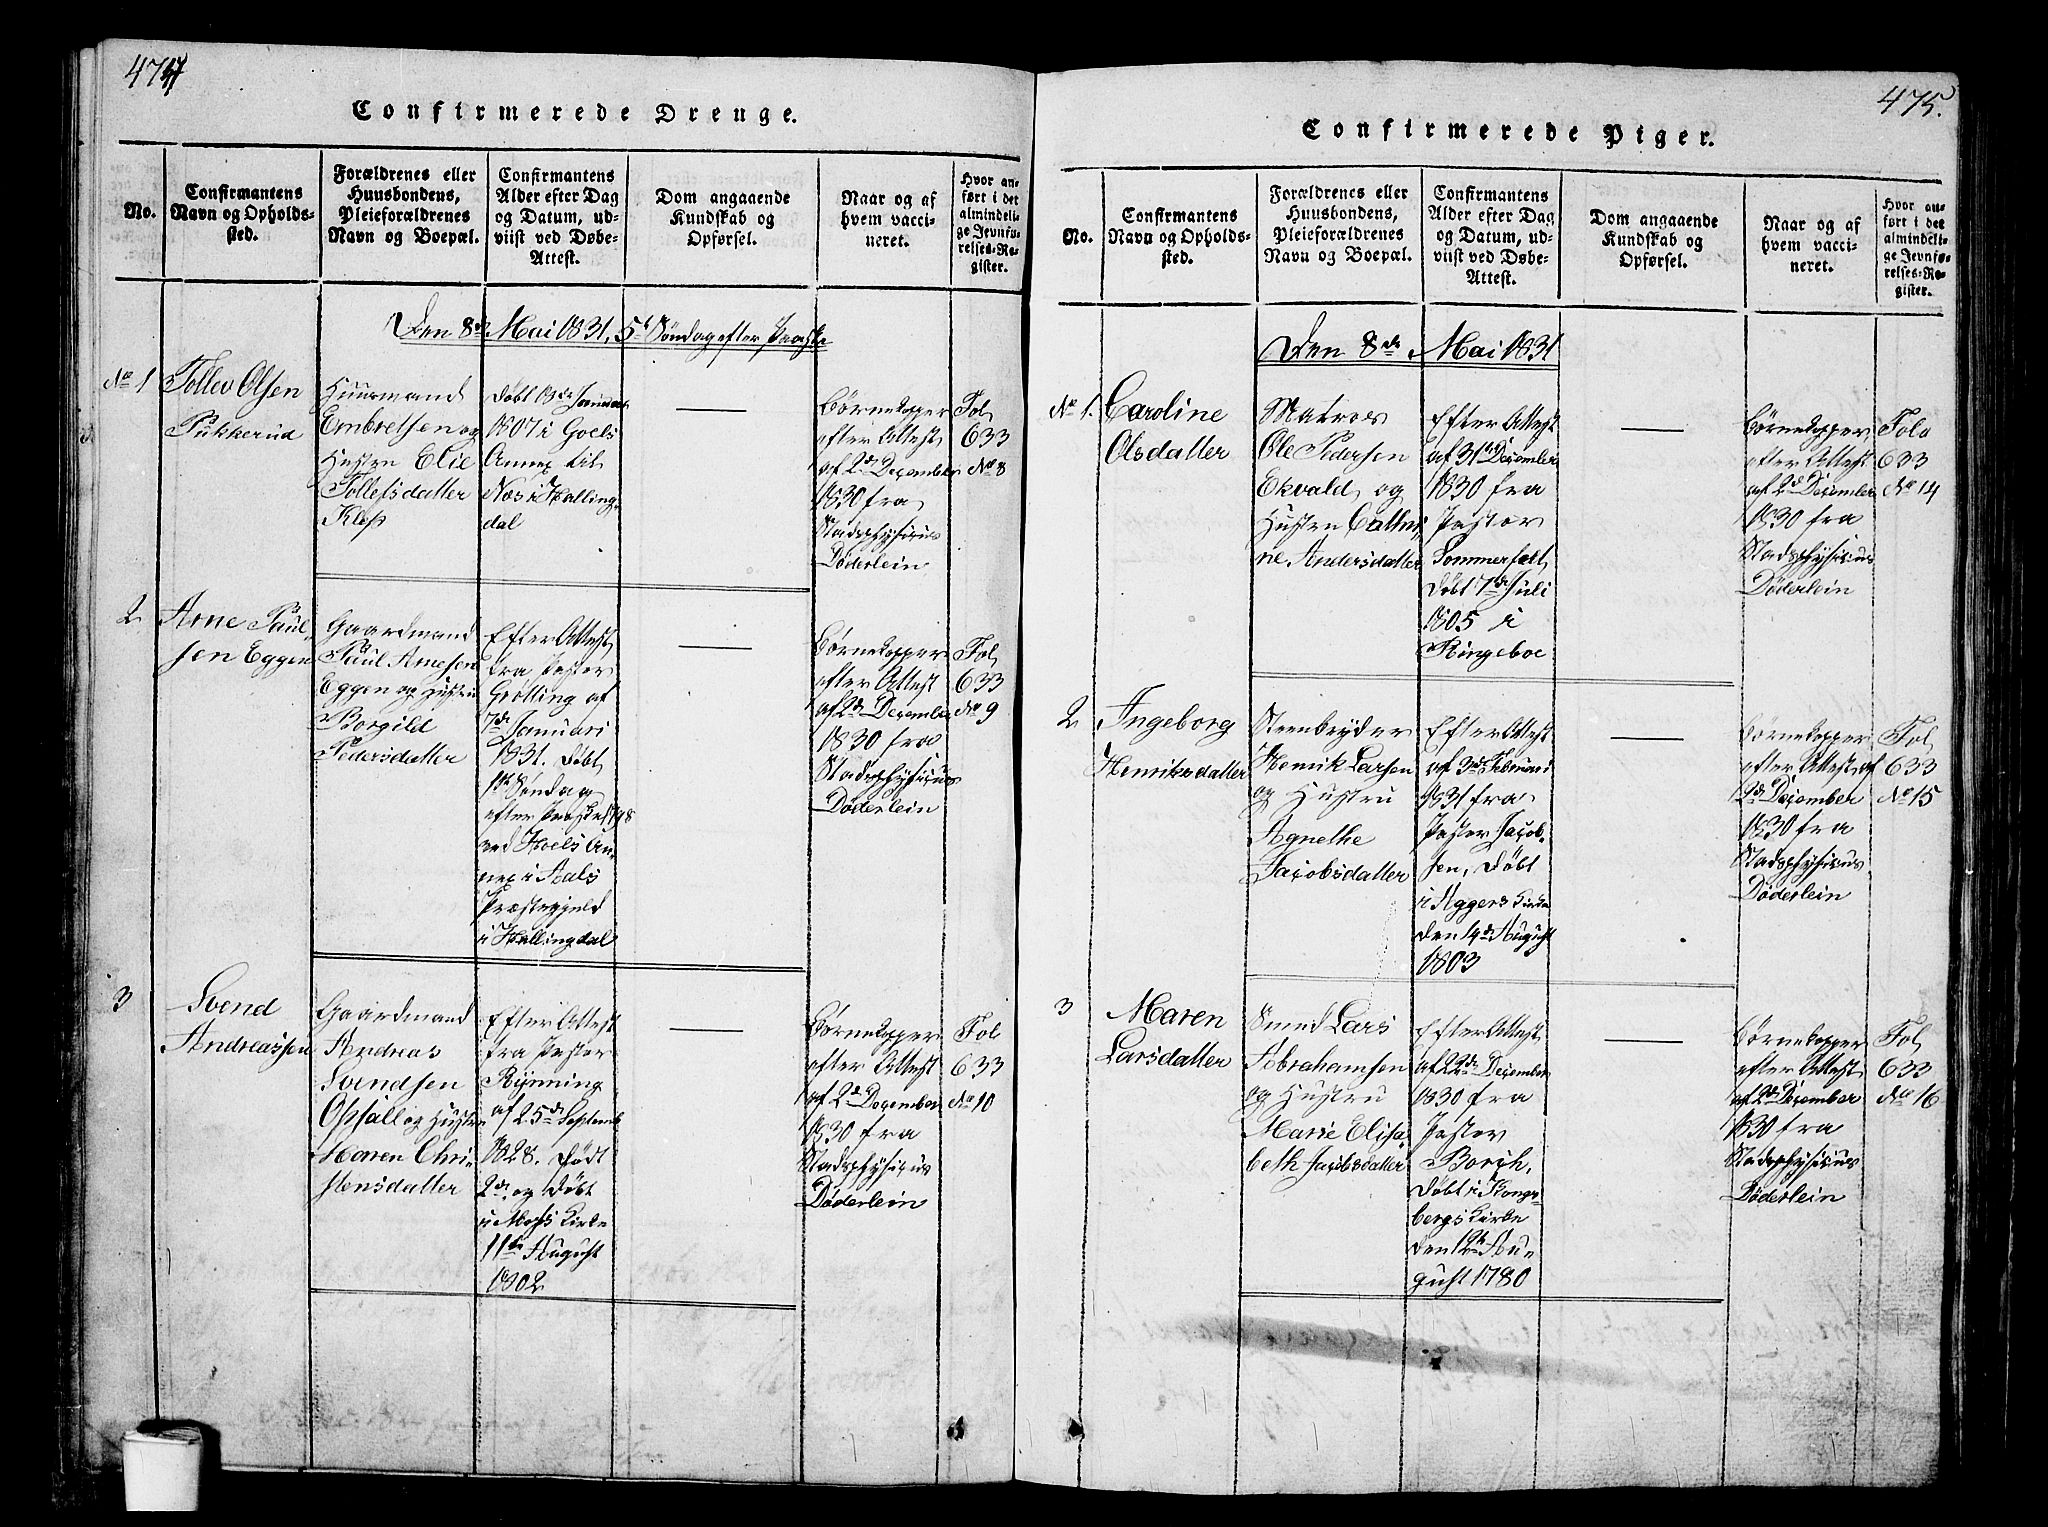 474
Confirmerede Drenge.
No.
Confirmantens
Navn og Opholds-
sted.
Forældrenes eller
Huusbondens,
Pleieforældrenes
Navn og Boepæl.
Confirmantens
Alder efter Dag
og Datum, ud-
viist ved Døbe-
Attest.
Dom angaaende
Kundskab og
Opførsel.
Naar og af
hvem vacci-
neret.
Hvor an-
ført i det
almindeli-
ge Jevnfø-
relses-Re-
gister.
Den 8de Mai 1831, 5te Søndag efter Paaske
No 1
Tollev Olsen
Pukkerud
Huusmand
Embretsen og
Hustru Elie
Tollefsdatter
Klep
Døbt 18de Januar
1807 i Goels
Annex til
Næs i Halling-
dal
Børnekopper
efter Attest
af 2de December
1830 fra
Stadsphysicus
Døderlein
Fol
633
No 8
2
Arne Paul-
sen Eggen
Gaardmand
Paul Arnesen
Eggen og Hustru
Borgild
Pedersdatter
Efter Attest
fra Pastor
Grölling af
7de Januari
1831. Døbt
1ste Søndag
efter Paaske 1798
ved Hoels An-
nex i Aals
Præstegjeld
i Hallingdal
Børnekopper
efter Attest
af 2de December
1830 fra
Stadsphysicus
Døderlein
Fol
633
No 9
3
Svend
Andreassen
Gaardmand
Andreas
Svendsen
Opsall og Hustru
Maren Chri-
stensdatter
Efter Attest
fra Pastor
Rynning
af 25de Septemb
1828. Født
2de og Døbt
i Moss Kirke
11te August
1802
Børnekopper
efter Attest
af 2de December
1830 fra
Stadsphysicus
Døderlein
Fol
633
No 10
475.
Confirmerede Piger.
No.
Confirmantens
Navn og Opholds-
sted.
Forældrenes eller
Huusbondens,
Pleieforældrenes
Navn og Boepæl.
Confirmantens
Alder efter Dag
og Datum, ud-
viist ved Døbe-
Attest.
Dom angaaende
Kundskab og
Opførsel.
Naar og af
hvem vacci-
neret.
Hvor an-
ført i det
almindeli-
ge Jevnfø-
relses-Re-
gister.
Den 8de Mai 1831
No 1.
Caroline
Olsdatter
Matros
Ole Pedersen
Ekvald og
Hustru Cathri-
ne Andersdatter
Efter Attest
af 31te December
1830 fra
Pastor
Sommerfelt,
Døbt 7de Juli
1805 i
Ringeboe
Børnekopper
efter Attest
af 2de December
1830 fra
Stadsphysicus
Døderlein
Folo
633
No 14
2
Ingeborg
Henriksdatter
Steenbryder
Henrik Larsen
og Hustru
Agnethe
Jacobsdatter
Efter Attest
af 3die Februari
1831 fra
Pastor Jacob-
sen, Døbt
i Aggers Kirke
den 14de August
1803
Børnekopper
efter Attest af
2de December
1830 fra
Stadsphysicus
Døderlein
Fol
633
No 15
3
Maren
Larsdatter
Smed Lars
Abrahamsen
og Hustru
Marie Elisa-
beth Jacobsdatter
Efter Attest
af 22de December
1830 fra
Pastor
Borch,
Døbt i Kongs-
bergs Kirke
den 12te Au-
gust 1780
Børnekopper
efter Attest
af 2de December
1830 fra
Stadsphysicus
Døderlein
Fol
633
No 16